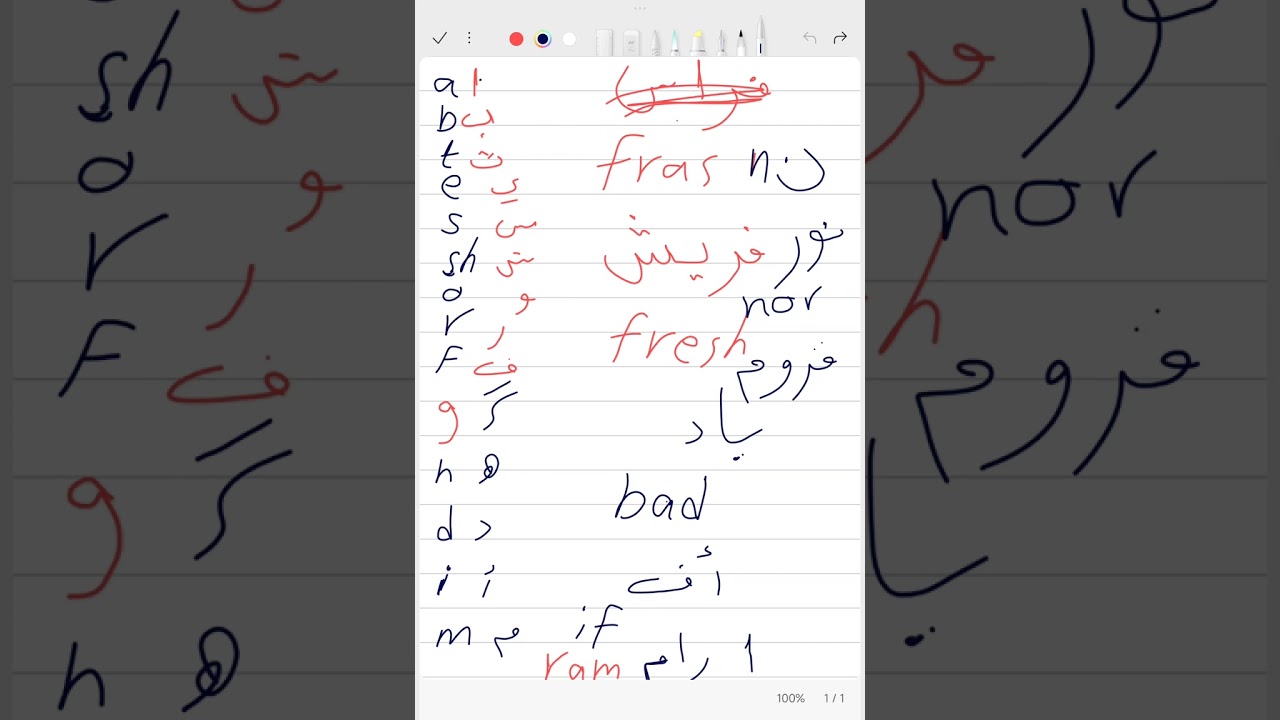 a ا
b ب
t ث
e ي
s س
sh ش
o و
r ر
F ف
g گ
h ه
d د
i أ
m م
fras n ن
فريش نور
nor
fresh
فروم
باد
bad
أف
if
ram رام ا
100% 1 / 1